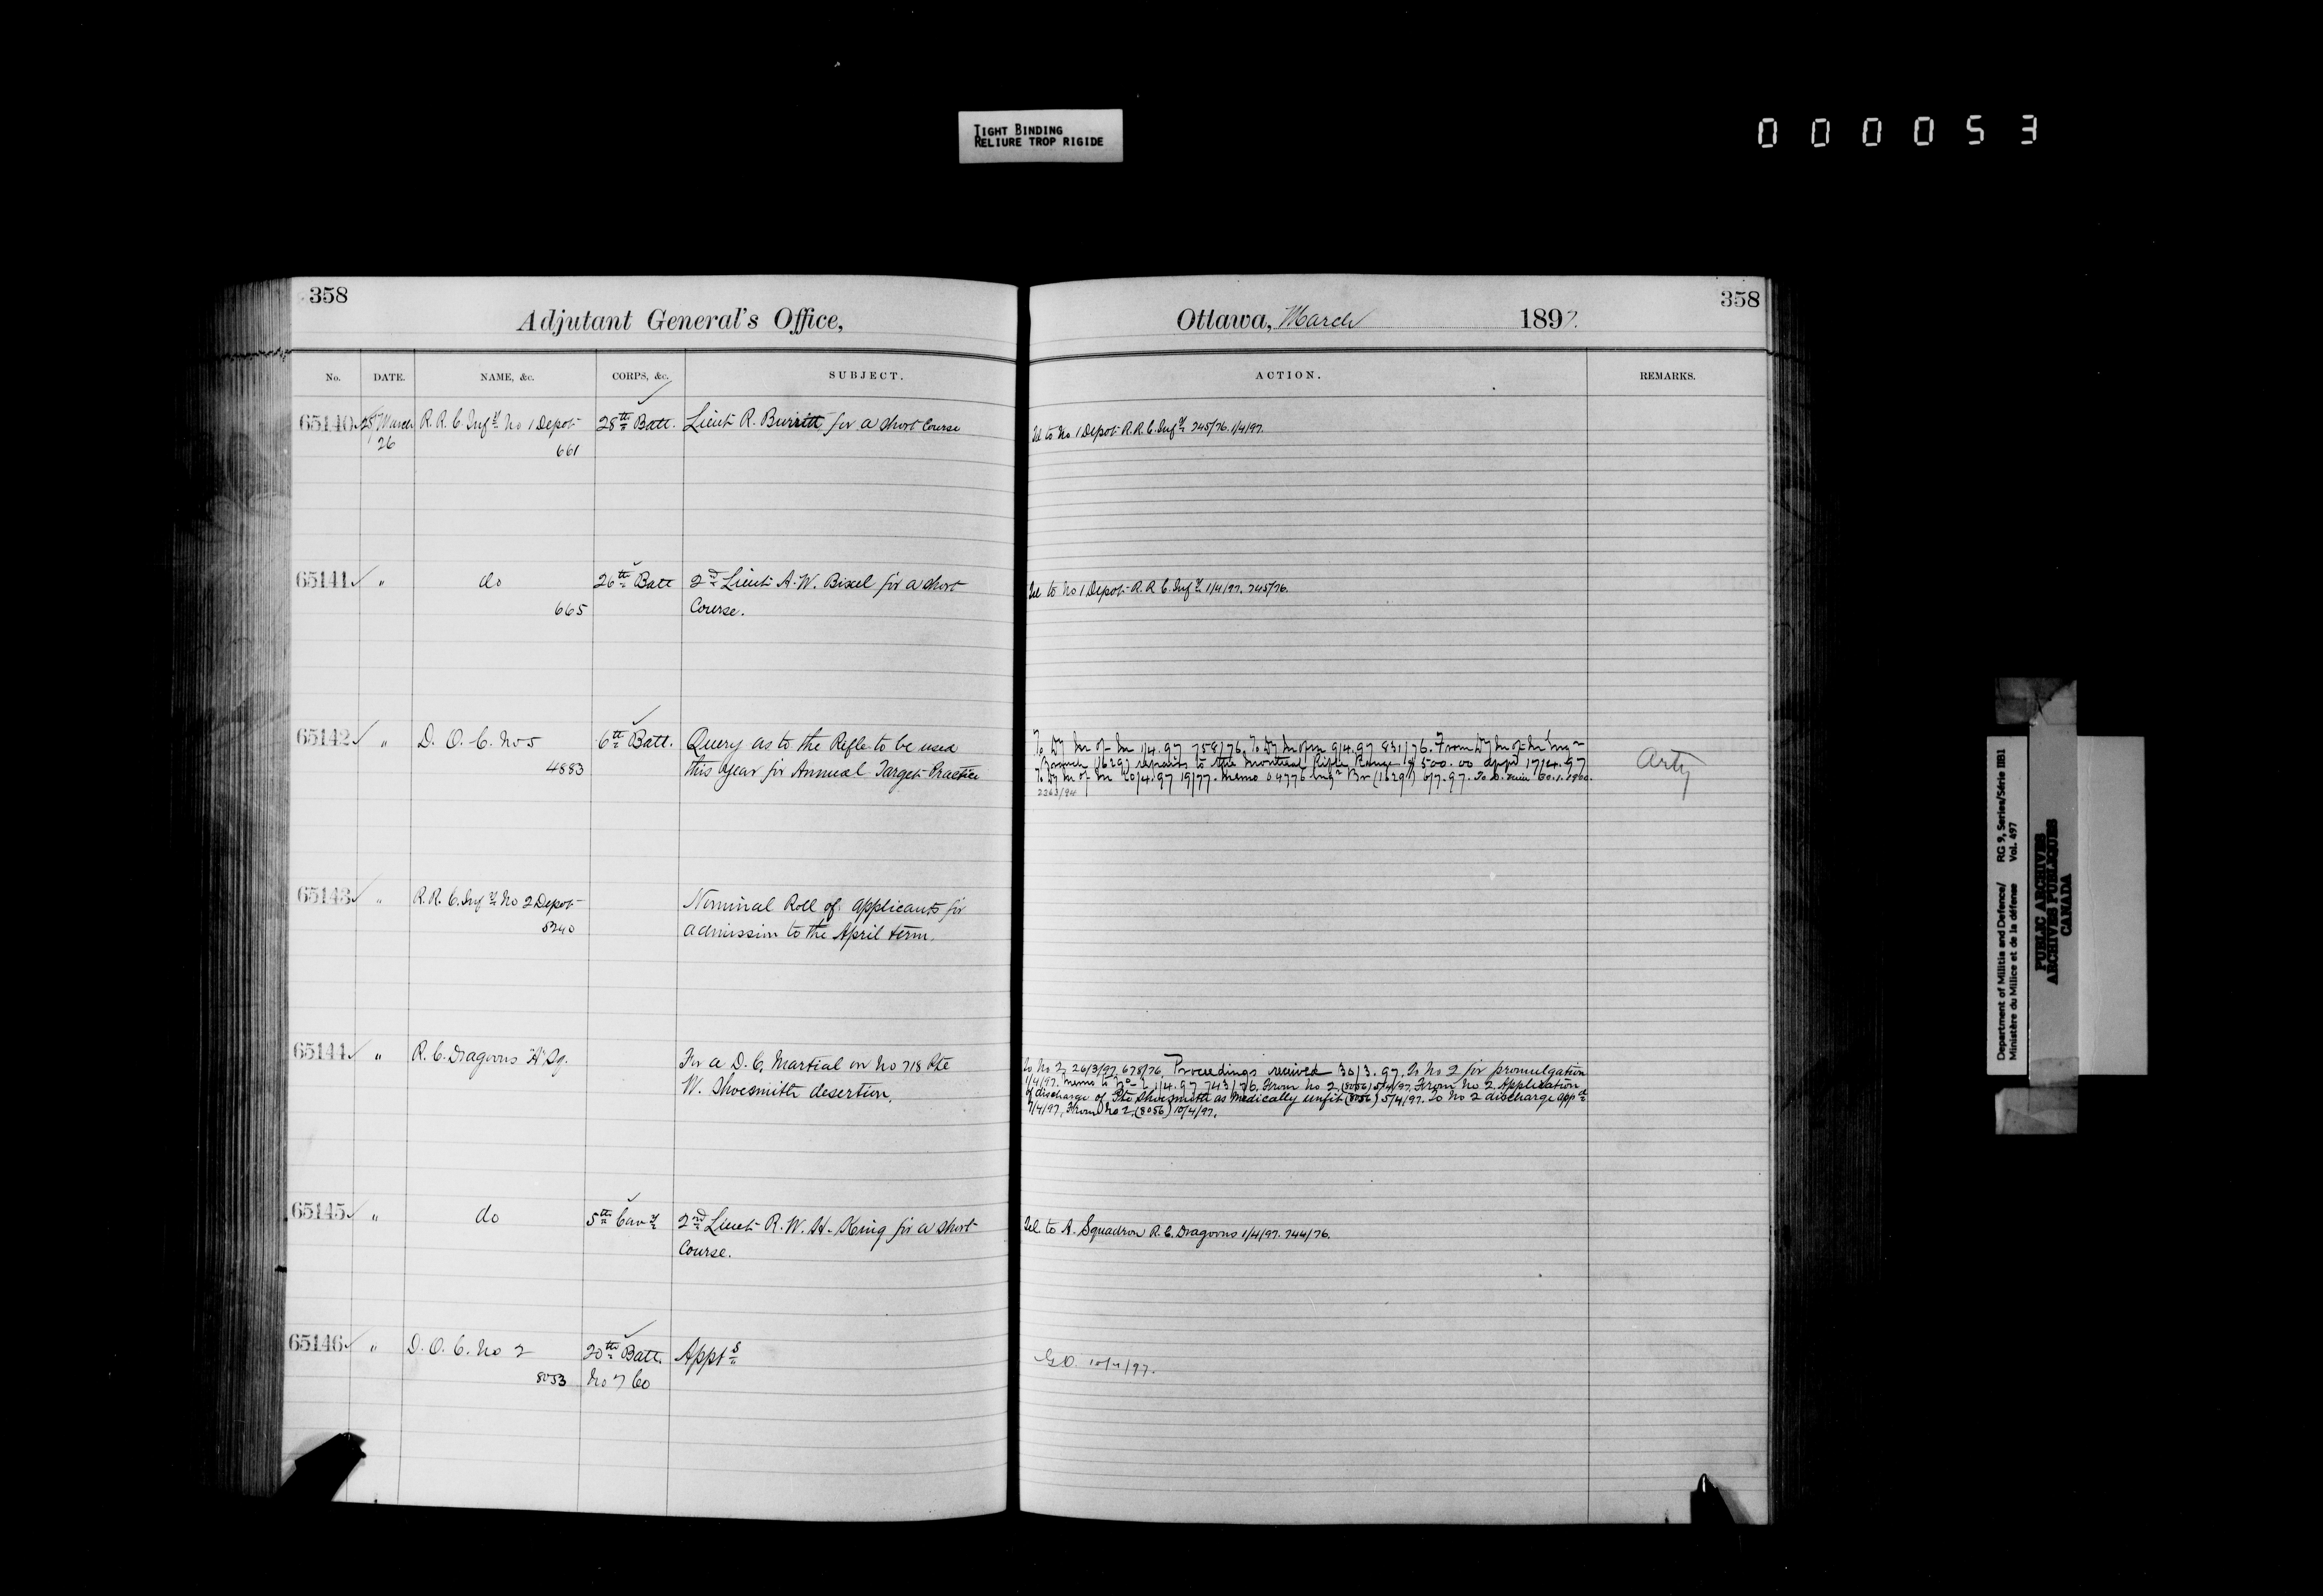 TIGHT BINDING
RELIURE TROP RIGIDE
000053
358
Adjutant General's Office,
No. DATE. NAME, &c. CORPS, &c. SUBJECT.
65140 March R.R.C. Infy No 1 Depot 28th Batt. Lieut R. Burritt for a short Course
26 661
65141 " do 26th Batt 2nd Lieut A. W. Bixel for a short
665 Course.
65142 " D. O. C. No 5 6th Batt. Query as to the Rifle to be used
4883 this year for Annual Target Practice
65143 " R.R.C. Infy No 2 Depot Nominal Roll of applicants for
5240 admission to the April term.
65144 " R.C. Dragoons "A" Sq. For a D.C. Martial on No 718 Pte
W. Shoesmith desertion.
65145 " do 5th Cavy 2nd Lieut R. W. H. King for a short
Course.
65146 " D. O. C. No 2 20th Batt. Appts
8053 No 7 Co
358
Ottawa, March 1897.
ACTION. REMARKS.
Tel to No 1 Depot R.R.C. Infy 745/76. 1/4/97.
Tel to No 1 Depot R.R.C. Infy 1/4/97. 745/76.
To Dy M of M 1/4.97 758/76. To Dy M of M 9/4.97 831/76. From Dy M of M Engr
Branch 16297 repairs to the Montreal Rifle Range $ 500.00 appd 17/4.97
To Dy M of M 20/4.97 19/77. Memo 04776 Engr Br (16297) 6/7.97.
2263/94
Arty
To No 2, 26/3/97 678/76. Proceedings received 30/3.97. To No 2 for promulgation
1/4/97. Memo to No 2 1/4.97 743/76. From No 2 (8056) 5/4/97. From No 2. Application
of discharge of Pte Shoesmith as Medically unfit (8056) 5/4/97. To No 2 discharge appd
7/4/97. From No 2 (8056) 10/4/97.
Tel to A. Squadron R.C. Dragoons 1/4/97. 744/76.
G.O. 10/4/97.
Department of Militia and Defence/ RG 9, Series/Série IIB1
Ministère du Milice et de la défense Vol. 497
PUBLIC ARCHIVES
ARCHIVES PUBLIQUES
CANADA